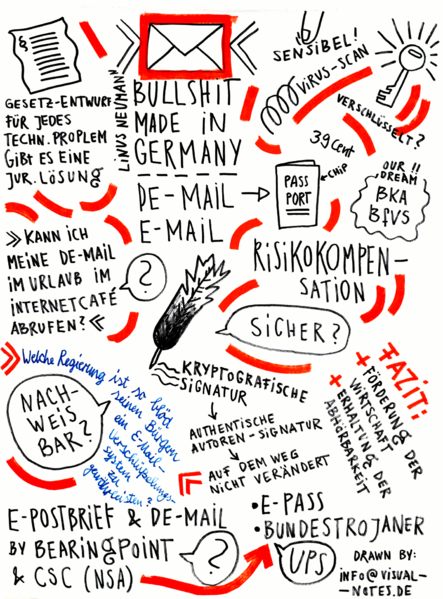 §
GESETZ-ENTWURF
FÜR JEDES
TECHN. PROPLEM
GIBT ES EINE
JUR. LÖSUNG
LINUS NEUMANN
BULLSHIT
MADE IN
GERMANY
DE-MAIL
E-MAIL
SENSIBEL!
VIRUS-SCAN
VERSCHLÜSSELT?
39 CENT
PASS
PORT
CHIP
OUR !!
DREAM
BKA
BFVS
» KANN ICH
MEINE DE-MAIL
IM URLAUB IM
INTERNETCAFÉ
ABRUFEN? «
?
RISIKOKOMPEN-
SATION
SICHER?
Welche Regierung
ist so blöd
seinen Bürgern
ein E-Mail-
verschlüsselungs-
system
zu
gewährleisten?
NACH-
WEIS
BAR?
KRYPTOGRAFISCHE
SIGNATUR
AUTHENTISCHE
AUTOREN-SIGNATUR
AUF DEM WEG
NICHT VERÄNDERT
FAZIT:
+ FÖRDERUNG DER
WIRTSCHAFT
+ ERHALTUNG DER
ABHÖRBARKEIT
E-POSTBRIEF & DE-MAIL
BY BEARINGPOINT
& CSC (NSA)
?
• E-PASS
• BUNDESTROJANER
UPS
DRAWN BY:
INFO@VISUAL-
-NOTES.DE